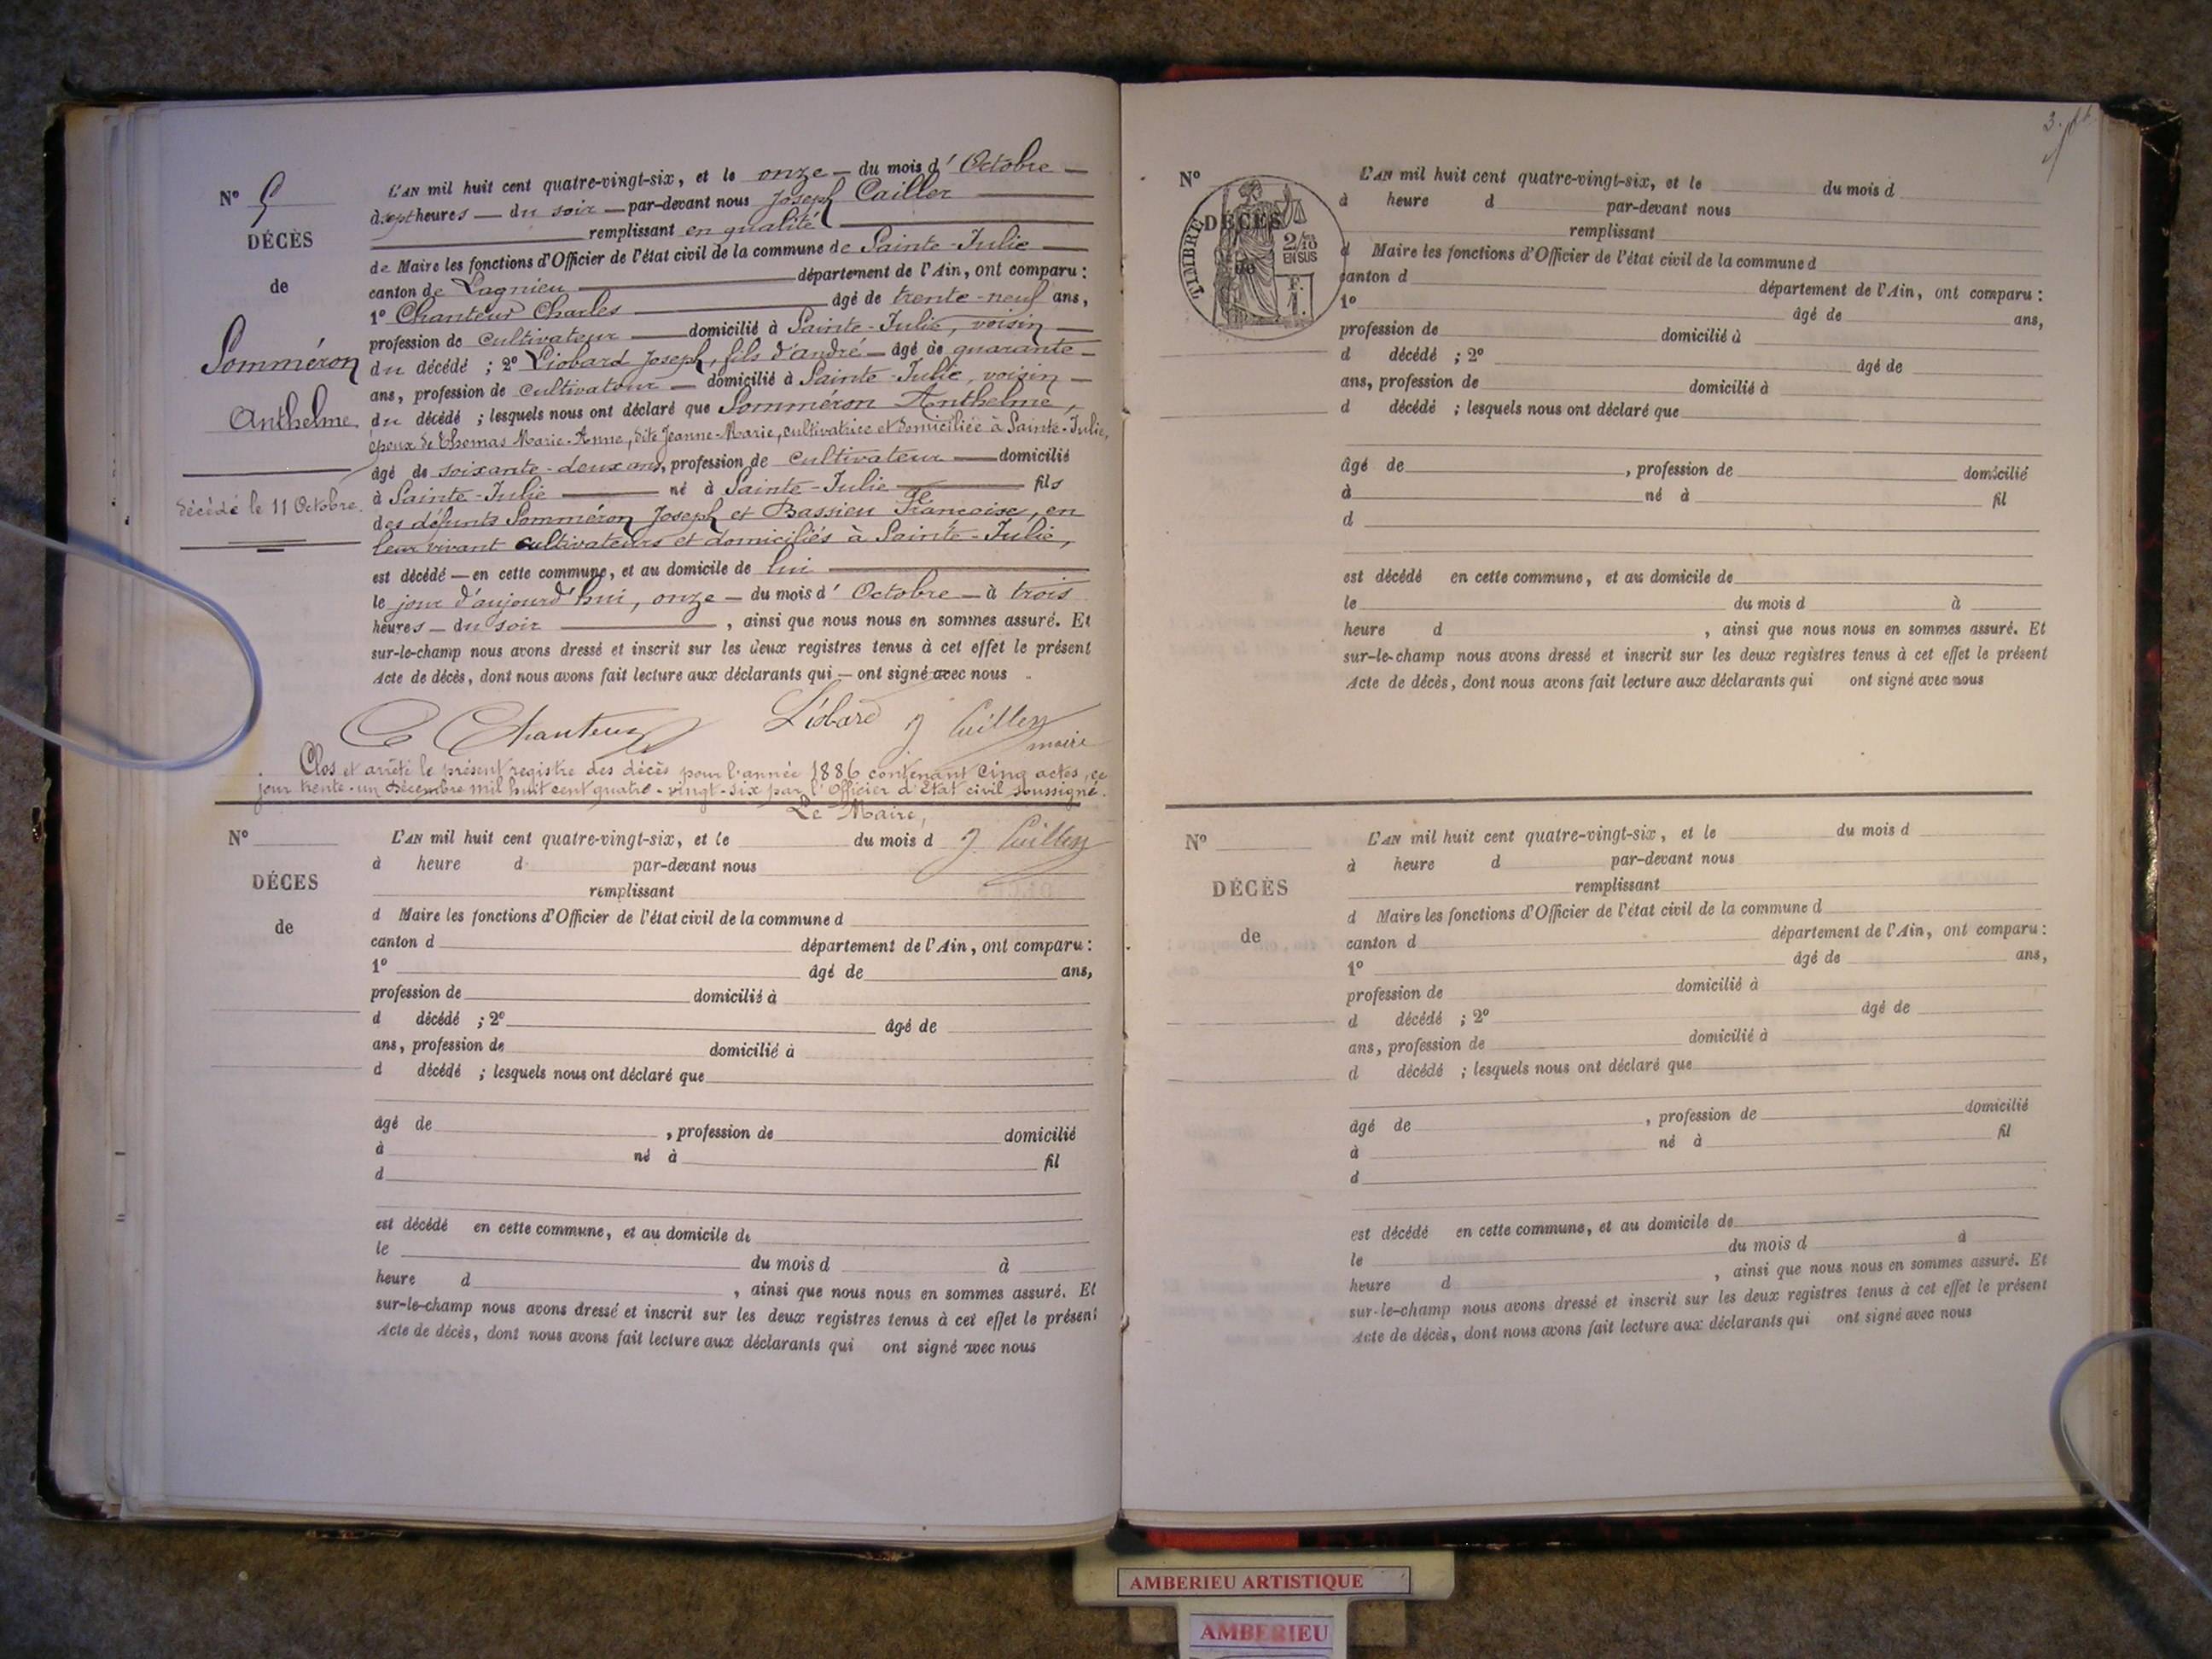 N° 5
DÉCÈS
de
Somméron
Anthelme
décédé le 11 Octobre
L'AN mil huit cent quatre-vingt-six, et le onze — du mois d'Octobre —
à sept heures — du soir — par-devant nous Joseph Cailler
remplissant en qualité
de Maire les fonctions d'Officier de l'état civil de la commune de Sainte-Julie
canton de Lagnieu département de l'Ain, ont comparu :
1° Chanteur Charles âgé de trente-neuf ans,
profession de cultivateur domicilié à Sainte-Julie, voisin
du décédé ; 2° Liobard Joseph, fils d'andré — âgé de quarante
ans, profession de cultivateur — domicilié à Sainte-Julie, voisin —
du décédé ; lesquels nous ont déclaré que Somméron Anthelme,
époux de Thomas Marie-Anne, dite Jeanne-Marie, cultivatrice et domiciliée à Sainte-Julie,
âgé de soixante-deux ans, profession de cultivateur — domicilié
à Sainte-Julie né à Sainte-Julie fils
des défunts Somméron Joseph et Bassieu Françoise, en
leur vivant cultivateurs et domiciliés à Sainte-Julie,
est décédé — en cette commune, et au domicile de lui
le jour d'aujourd'hui, onze — du mois d'Octobre — à trois
heures — du soir , ainsi que nous nous en sommes assuré. Et
sur-le-champ nous avons dressé et inscrit sur les deux registres tenus à cet effet le présent
Acte de décès, dont nous avons fait lecture aux déclarants qui — ont signé avec nous
C Chanteur Liobard J Cailler
maire
Clos et arrêté le présent registre des décès pour l'année 1886 contenant Cinq actes, ce
jour trente-un Décembre mil huit cent quatre-vingt-six par l'Officier d'Etat civil soussigné.
Le Maire,
J Cailler
N°
DÉCES
de
L'AN mil huit cent quatre-vingt-six, et le du mois d
à heure d par-devant nous
remplissant
d Maire les fonctions d'Officier de l'état civil de la commune d
canton d département de l'Ain, ont comparu :
1° âgé de ans,
profession de domicilié à
d décédé ; 2° âgé de
ans, profession de domicilié à
d décédé ; lesquels nous ont déclaré que
âgé de , profession de domicilié
à né à fil
d
est décédé en cette commune, et au domicile de
le du mois d à
heure d , ainsi que nous nous en sommes assuré. Et
sur-le-champ nous avons dressé et inscrit sur les deux registres tenus à cet effet le présent
Acte de décès, dont nous avons fait lecture aux déclarants qui ont signé avec nous
N°
DÉCÈS
de
TIMBRE
2/10
EN SUS
F.
1.
L'AN mil huit cent quatre-vingt-six, et le du mois d
à heure d par-devant nous
remplissant
d Maire les fonctions d'Officier de l'état civil de la commune d
canton d département de l'Ain, ont comparu :
1° âgé de ans,
profession de domicilié à
d décédé ; 2° âgé de
ans, profession de domicilié à
d décédé ; lesquels nous ont déclaré que
âgé de , profession de domicilié
à né à fil
d
est décédé en cette commune, et au domicile de
le du mois d à
heure d , ainsi que nous nous en sommes assuré. Et
sur-le-champ nous avons dressé et inscrit sur les deux registres tenus à cet effet le présent
Acte de décès, dont nous avons fait lecture aux déclarants qui ont signé avec nous
N°
DÉCÈS
de
L'AN mil huit cent quatre-vingt-six, et le du mois d
à heure d par-devant nous
remplissant
d Maire les fonctions d'Officier de l'état civil de la commune d
canton d département de l'Ain, ont comparu :
1° âgé de ans,
profession de domicilié à
d décédé ; 2° âgé de
ans, profession de domicilié à
d décédé ; lesquels nous ont déclaré que
âgé de , profession de domicilié
à né à fil
d
est décédé en cette commune, et au domicile de
le du mois d à
heure d , ainsi que nous nous en sommes assuré. Et
sur-le-champ nous avons dressé et inscrit sur les deux registres tenus à cet effet le présent
Acte de décès, dont nous avons fait lecture aux déclarants qui ont signé avec nous
AMBERIEU ARTISTIQUE
AMBERIEU